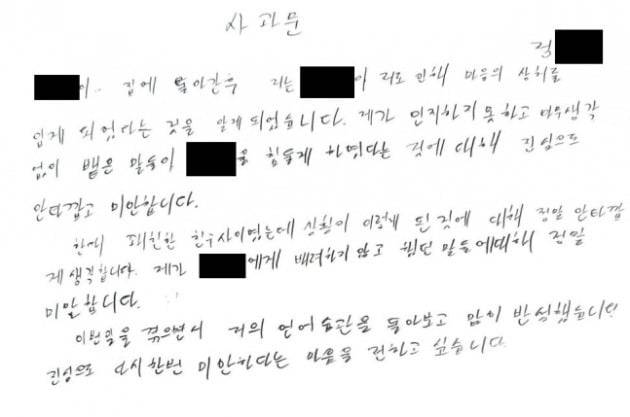 사과문
정
이.. 집에 돌아간후 저는 이 저로 인해 마음의 상처를
입게 되었다는 것을 알게 되었습니다. 제가 인지하지 못하고 아무생각
없이 뱉은 말들이 을 힘들게 하였다는 것에 대해 진심으로
안타깝고 미안합니다.
한때 제일친한 친구사이였는데 상황이 이렇게 된 것에 대해 정말 안타깝
게 생각합니다. 제가 에게 배려하지 않고 했던 말들에대해 정말
미안합니다.
이번일을 겪으면서 저의 언어습관을 돌아보고 많이 반성했습니다
진심으로 다시한번 미안하다는 마음을 전하고 싶습니다.